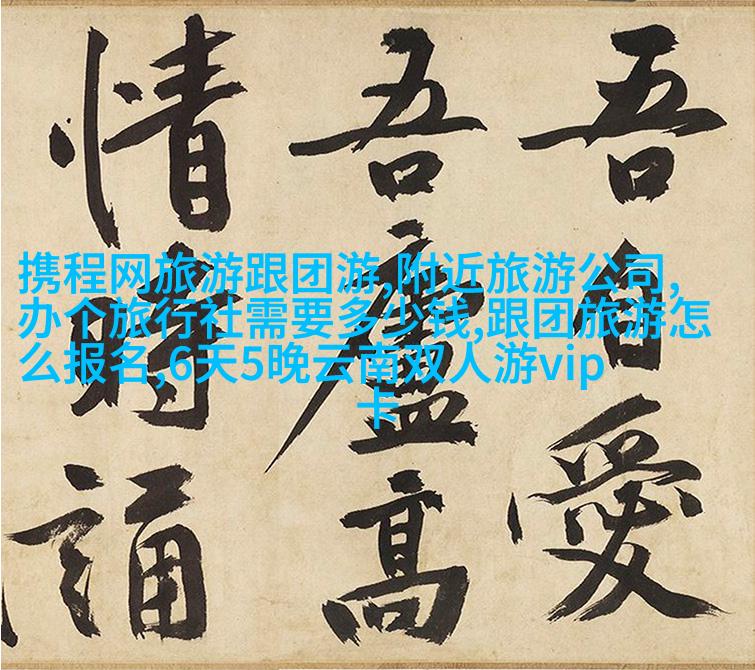 吾自愛
吾廬高
情時誦
携程网旅游跟团游,附近旅游公司,
办个旅行社需要多少钱,跟团旅游怎
么报名,6天5晚云南双人游vip
卡